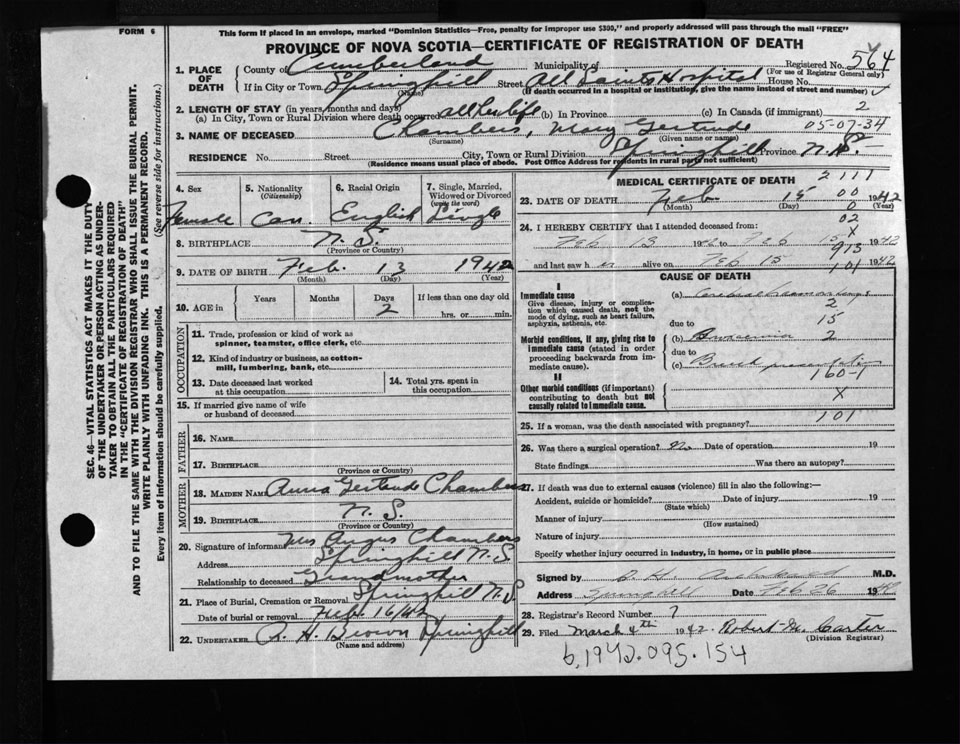 FORM 6
This form if placed in an envelope, marked "Dominion Statistics—Free, penalty for improper use $300," and properly addressed will pass through the mail "FREE"
PROVINCE OF NOVA SCOTIA—CERTIFICATE OF REGISTRATION OF DEATH
564
1. PLACE OF DEATH County of Cumberland Municipality of Registered No. (For use of Registrar General only)
If in City or Town Springhill (Name) Street All Saints Hospital House No.
(If death occurred in a hospital or institution, give the name instead of street and number)
2. LENGTH OF STAY (in years, months and days)
(a) In City, Town or Rural Division where death occurred all her life (b) In Province (c) In Canada (if immigrant) 2
3. NAME OF DECEASED Chambers, Mary Gertrude 05-07-34
(Surname) (Given name or names)
RESIDENCE No. Street City, Town or Rural Division Springhill Province N.S.
(Residence means usual place of abode. Post Office Address for residents in rural parts not sufficient)
4. Sex Female
5. Nationality (Citizenship) Can.
6. Racial Origin English
7. Single, Married, Widowed or Divorced (write the word) Single
8. BIRTHPLACE N. S.
(Province or Country)
9. DATE OF BIRTH Feb. 13 1942
(Month) (Day) (Year)
10. AGE in Years Months Days 2 If less than one day old hrs. or min.
OCCUPATION
11. Trade, profession or kind of work as spinner, teamster, office clerk, etc.
12. Kind of industry or business, as cotton-mill, lumbering, bank, etc.
13. Date deceased last worked at this occupation
14. Total yrs. spent in this occupation
15. If married give name of wife or husband of deceased
FATHER
16. NAME
17. BIRTHPLACE
(Province or Country)
MOTHER
18. MAIDEN NAME Anna Gertrude Chambers
19. BIRTHPLACE N. S.
(Province or Country)
20. Signature of informant Mrs Angus Chambers
Address Springhill N.S
Relationship to deceased Grandmother
21. Place of Burial, Cremation or Removal Springhill N.S
Date of burial or removal Feb. 16/42
22. UNDERTAKER A. H. Brown Springhill
(Name and address)
MEDICAL CERTIFICATE OF DEATH 2111
23. DATE OF DEATH Feb 15 1942
(Month) (Day) 00 0
24. I HEREBY CERTIFY that I attended deceased from: 02
X
Feb 13 to Feb 1942
913
and last saw h er alive on Feb 15 1942
101
CAUSE OF DEATH
I
Immediate cause
Give disease, injury or complication which caused death, not the mode of dying, such as heart failure, asphyxia, asthenia, etc.
(a)
2
due to 15
Morbid conditions, if any, giving rise to immediate cause (stated in order proceeding backwards from immediate cause).
(b) 2
due to
(c) Breech presentation
160-1
II
Other morbid conditions (if important) contributing to death but not causally related to immediate cause.
X
101
25. If a woman, was the death associated with pregnancy?
26. Was there a surgical operation? No Date of operation 19
State findings Was there an autopsy?
27. If death was due to external causes (violence) fill in also the following:—
Accident, suicide or homicide? Date of injury 19
(State which)
Manner of injury
(How sustained)
Nature of injury
Specify whether injury occurred in industry, in home, or in public place
Signed by Archibald M.D.
Address Springhill Date Feb 26 1942
28. Registrar's Record Number 7
29. Filed March 4th 1942. Robert M. Carter
(Division Registrar)
b.1942.095.154
SEC. 46—VITAL STATISTICS ACT MAKES IT THE DUTY
OF THE UNDERTAKER OR PERSON ACTING AS UNDER-
TAKER TO OBTAIN ALL THE PARTICULARS REQUIRED
IN THE "CERTIFICATE OF REGISTRATION OF DEATH"
AND TO FILE THE SAME WITH THE DIVISION REGISTRAR WHO SHALL ISSUE THE BURIAL PERMIT.
WRITE PLAINLY WITH UNFADING INK. THIS IS A PERMANENT RECORD.
Every item of information should be carefully supplied. (See reverse side for instructions.)